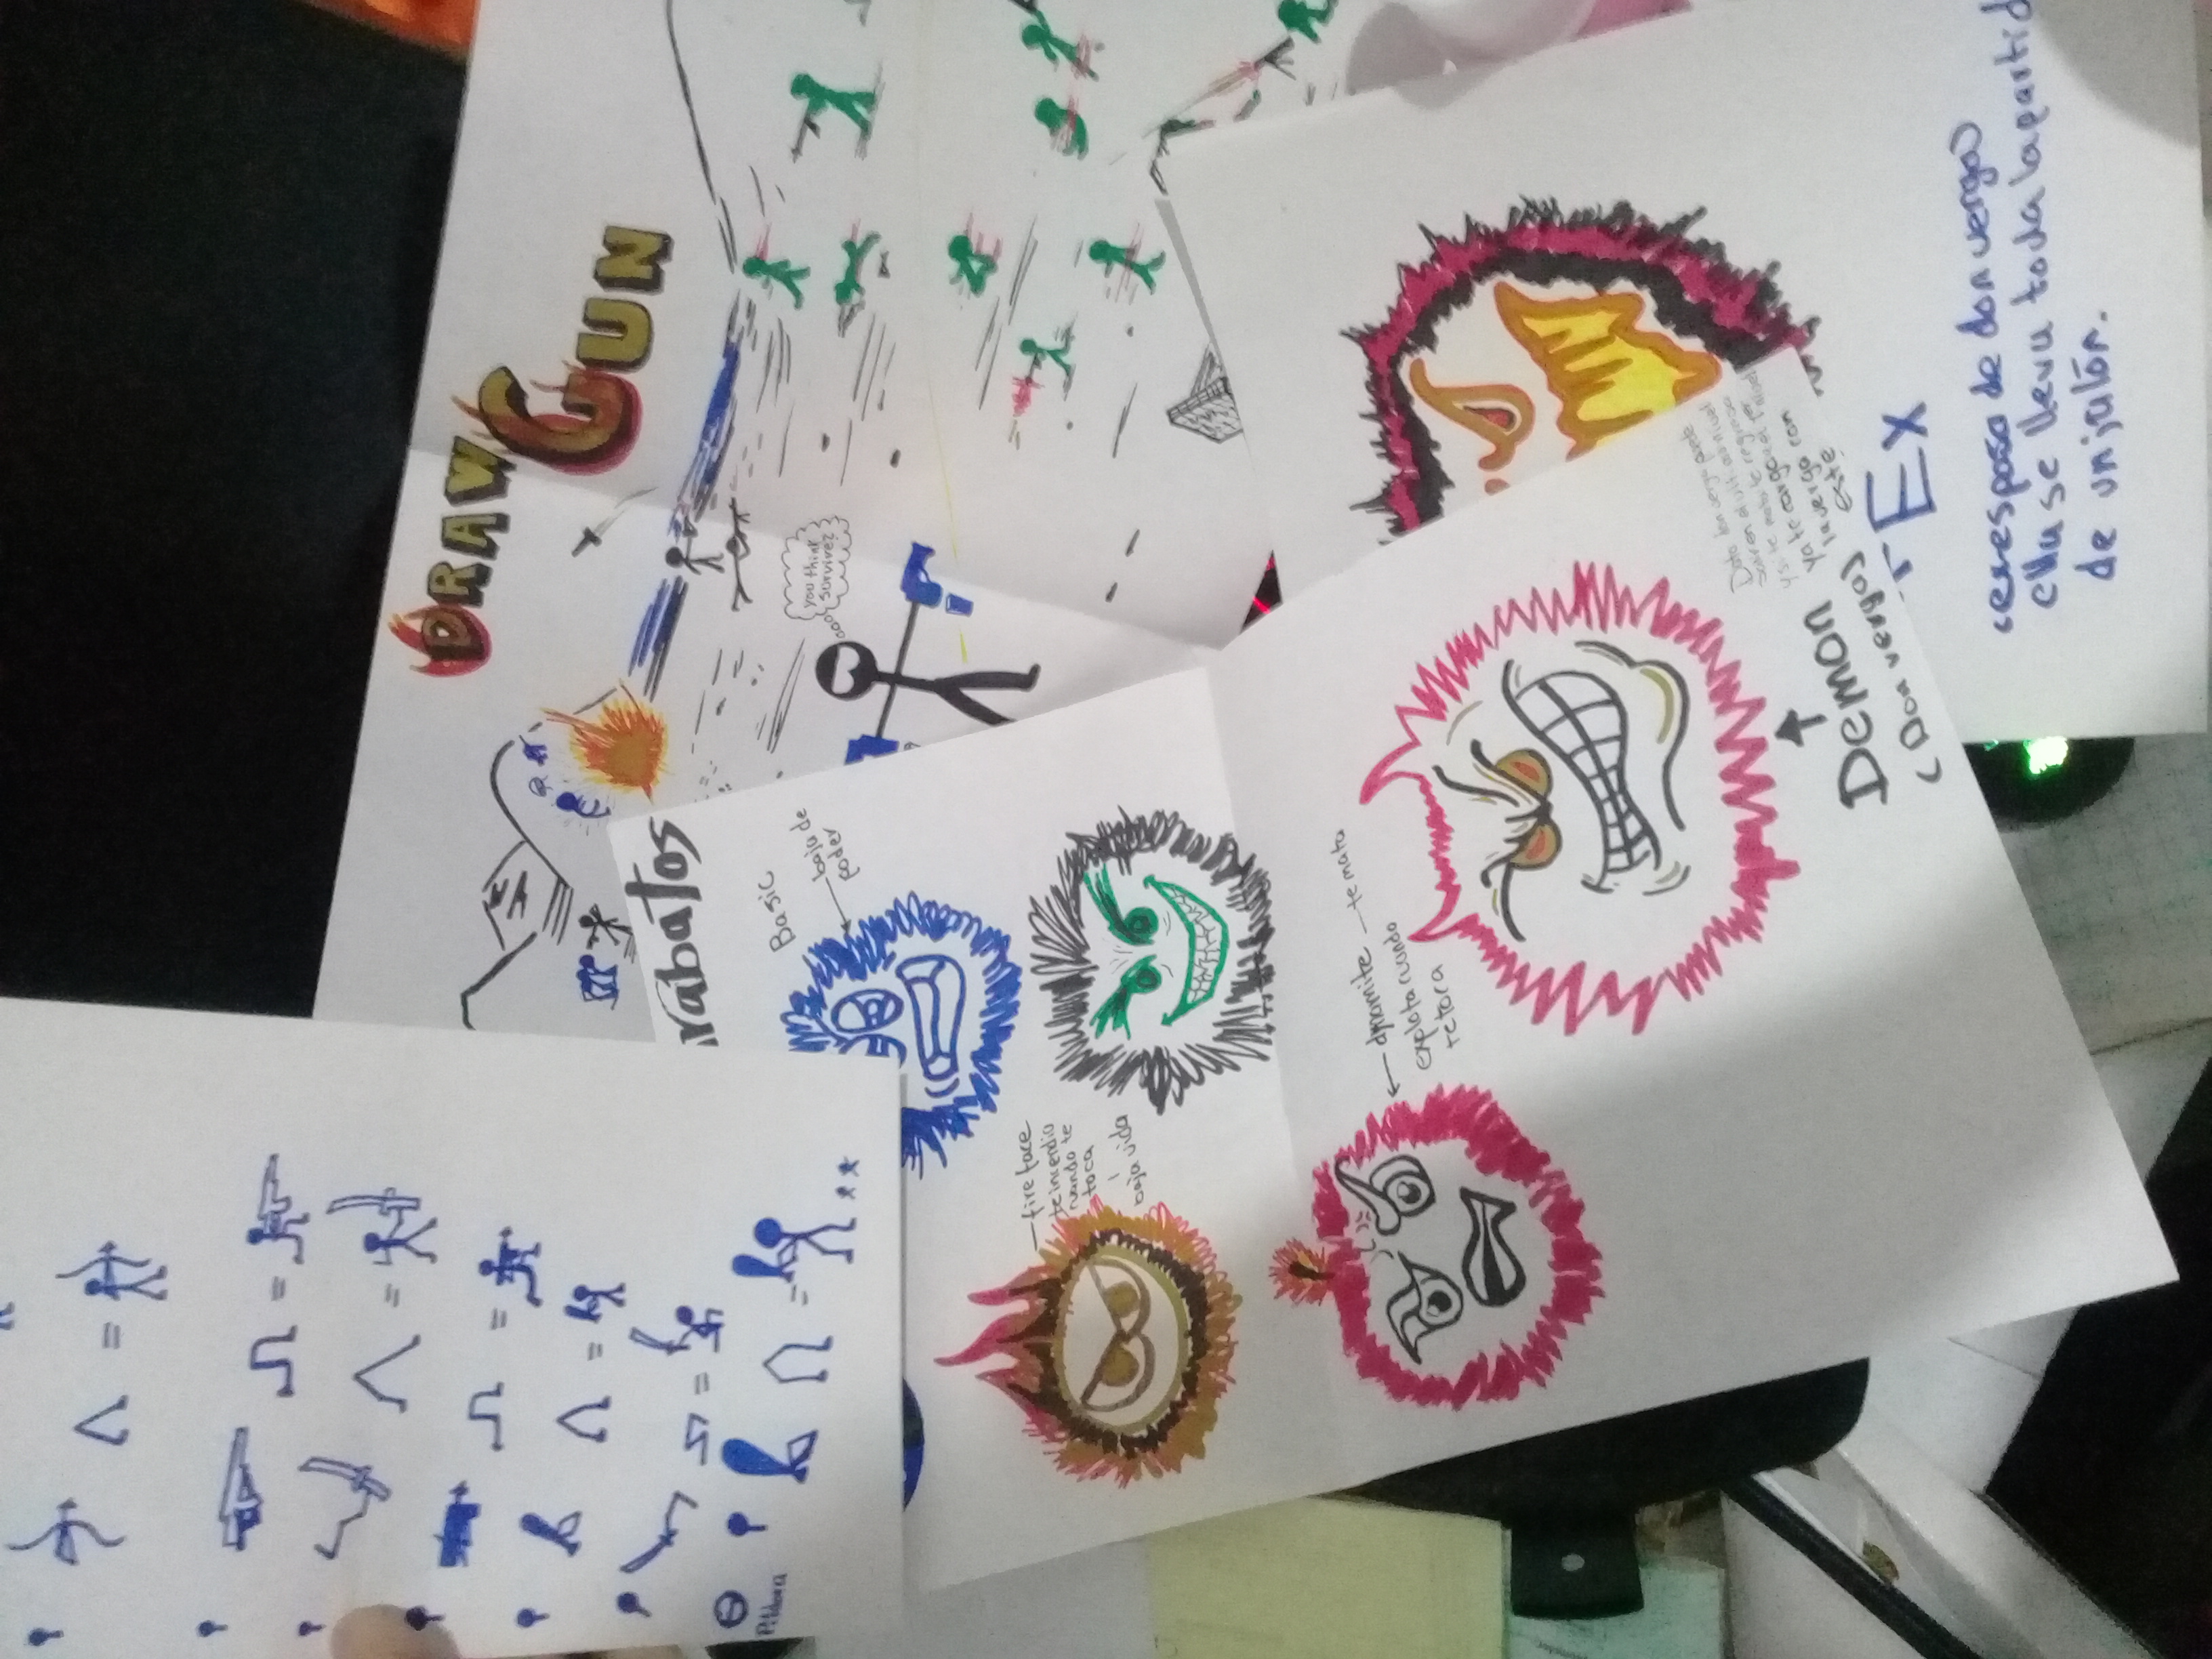 Pildora
DRAW
GUN
you think
survive?
rabatos
Basic
baja de
poder
fire face
te incendio
cuando te
toca
baja vida
dynamite te mata
explota cuando
te toca
Demon
(Don verga)
Dato don verga puede
salir en el ultimo nivel
y si te mata te regresa
ya te cargo
la verga con
este
Ex
ex esposa de don verga)
ella se lleva toda la partid
de un jalón.